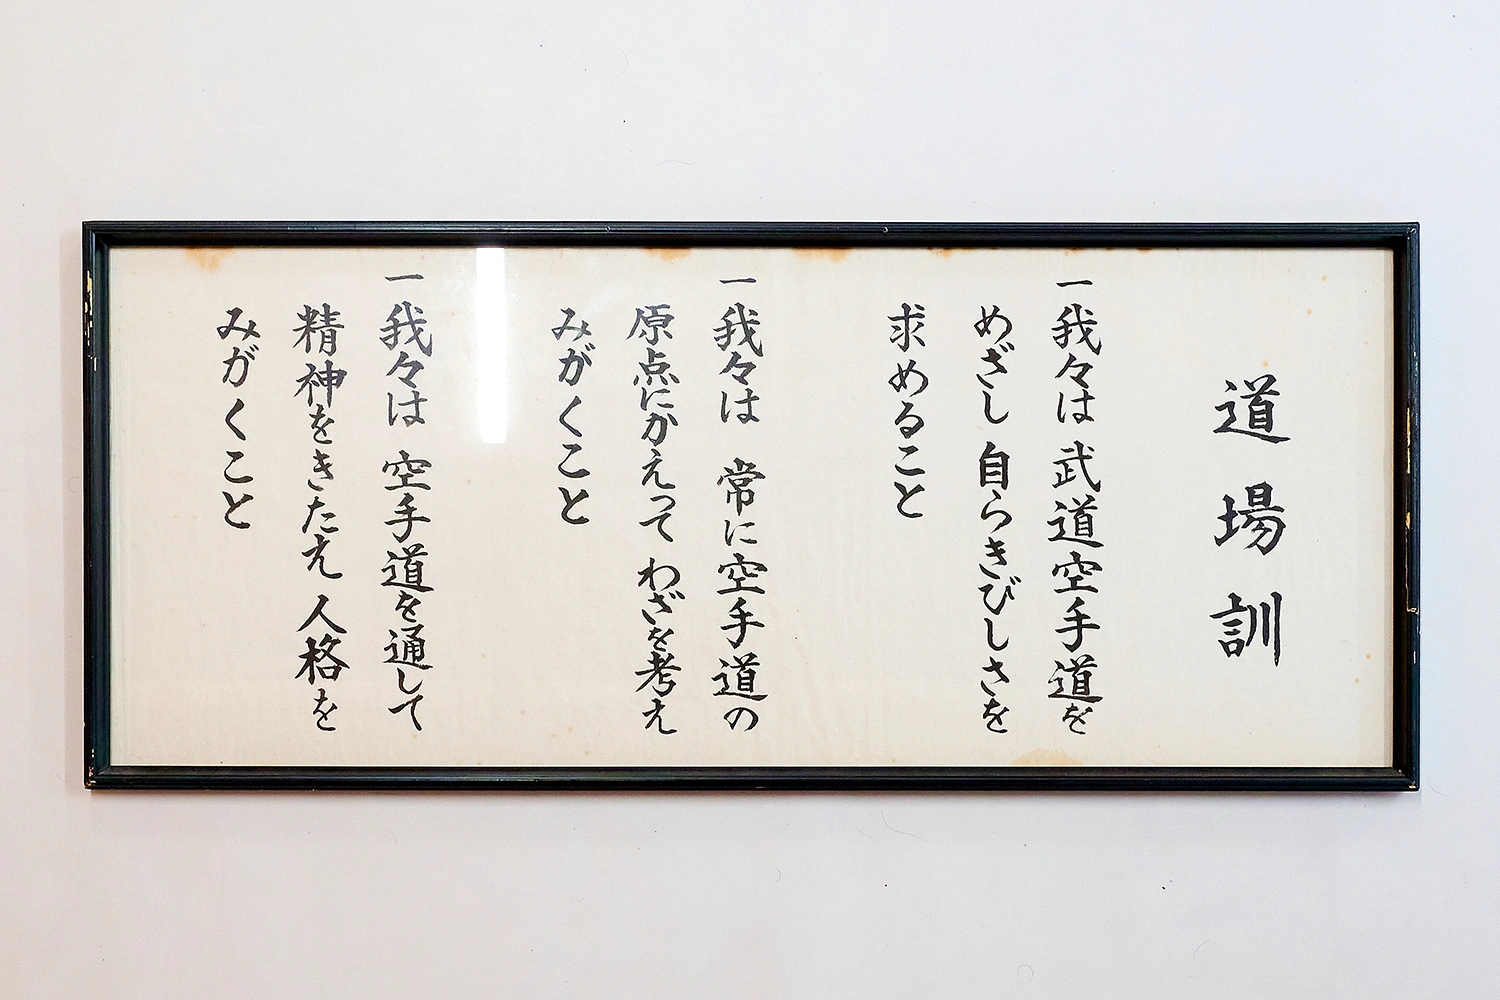 道場訓
一我々は 武道空手道を
めざし 自らきびしさを
求めること
一我々は 常に空手道の
原点にかえって わざを考え
みがくこと
一我々は 空手道を通して
精神をきたえ 人格を
みがくこと